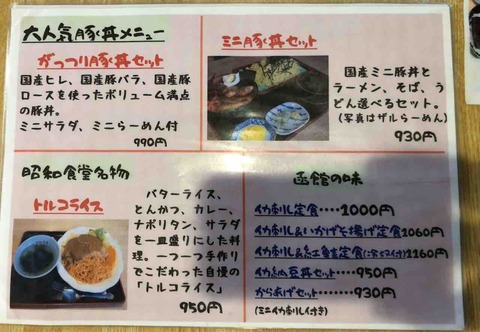 大人気豚丼メニュー
がっつり豚丼セット
国産ヒレ、国産豚バラ、国産豚
ロースを使ったボリューム満点
の豚丼。
ミニサラダ、ミニらーめん付
990円
ミニ豚丼セット
国産ミニ豚丼と
ラーメン、そば、う
どん選べるセット。
(写真はザルらーめん)
930円
昭和食堂名物
トルコライス
バターライス、
とんかつ、カレー、
ナポリタン、サラダ
を一皿盛りにした料
理。一つ一つ手作り
でこだわった自慢の
「トルコライス」
950円
函館の味
イカ刺し定食・・・・1000円
イカ刺し&いかげそ揚げ定食1060円
イカ刺し&紅鮭定食 1160円
イカ納豆丼セット・・・・950円
からあげセット・・・・930円
(ミニイカ刺し付き)